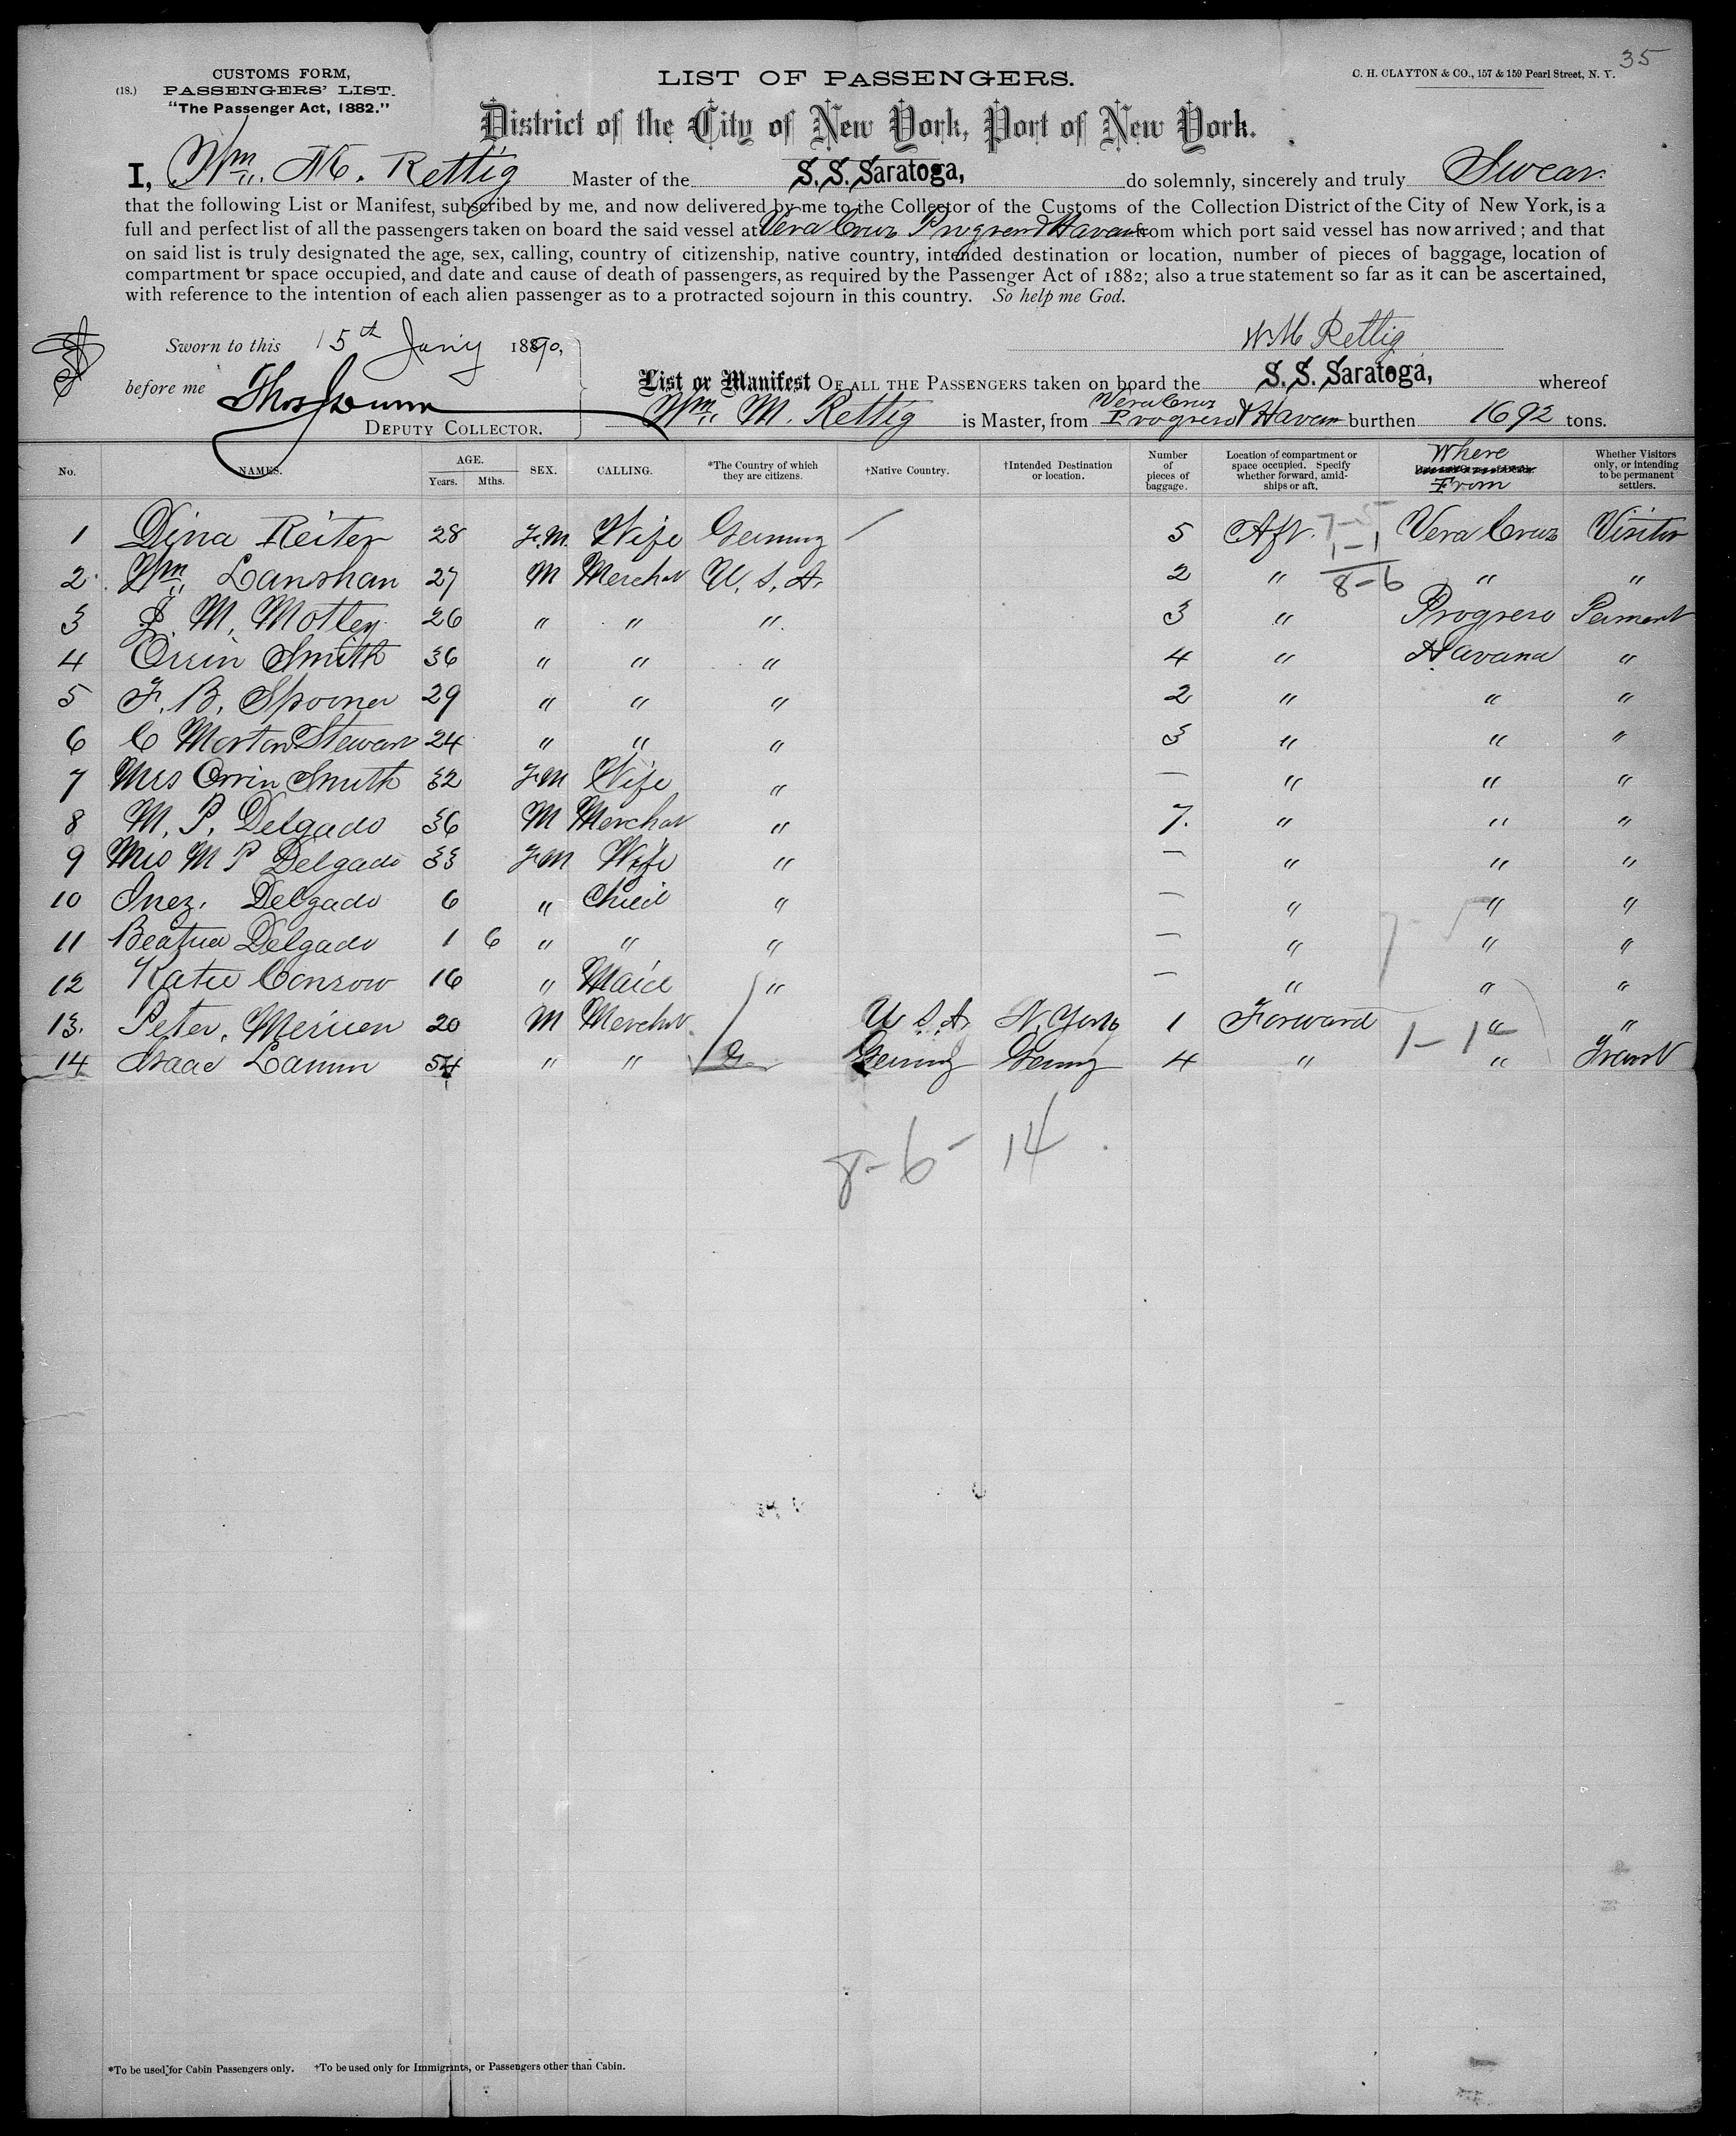 35
CUSTOMS FORM,
(18.) PASSENGERS' LIST.
"The Passenger Act, 1882."
LIST OF PASSENGERS.
C. H. CLAYTON & CO., 157 & 159 Pearl Street, N. Y.
District of the City of New York, Port of New York.
I, Wm. M. Rettig Master of the S. S. Saratoga, do solemnly, sincerely and truly Swear
that the following List or Manifest, subscribed by me, and now delivered by me to the Collector of the Customs of the Collection District of the City of New York, is a
full and perfect list of all the passengers taken on board the said vessel at Vera Cruz Progreso & Havana from which port said vessel has now arrived; and that
on said list is truly designated the age, sex, calling, country of citizenship, native country, intended destination or location, number of pieces of baggage, location of
compartment or space occupied, and date and cause of death of passengers, as required by the Passenger Act of 1882; also a true statement so far as it can be ascertained,
with reference to the intention of each alien passenger as to a protracted sojourn in this country. So help me God.
Sworn to this 15th Jany 1890,
W M Rettig
before me Thos
DEPUTY COLLECTOR.
List or Manifest OF ALL THE PASSENGERS taken on board the S. S. Saratoga, whereof
Wm. M. Rettig is Master, from Vera Cruz Progreso & Havana burthen 1692 tons.
No. NAMES. AGE. Years. Mths. SEX. CALLING. *The Country of which they are citizens. †Native Country. †Intended Destination or location. Number of pieces of baggage. Location of compartment or space occupied. Specify whether forward, amidships or aft. Where From Whether Visitors only, or intending to be permanent settlers.
1 Dina Reiter 28 F.M. Wife Germny 5 Aft. 7-5 Vera Cruz Visitor
1-1
2 Wm. Lanshan 27 M Merchat U. S. A. 2 " 8-6 " "
3 J. M. Motley 26 " " " 3 " Progreso Perment
4 Orrin Smith 36 " " " 4 " Havana "
5 F. B. Spooner 29 " " " 2 " " "
6 C Morton Stewart 24 " " " 3 " " "
7 Mrs Orrin Smith 32 F.M Wife " — " " "
8 M. P. Delgado 36 M Merchat " 7. " " "
9 Mrs M P Delgado 33 F.M Wife " — " " "
10 Inez. Delgado 6 " Child " — " " "
11 Beatrice Delgado 1 6 " " " — " 7-5 " "
12 Katie Conrow 16 " Maid " — " " "
13. Peter. 20 M Merchat U S A N. York 1 Forward 1-1 " "
14 Isaac Lamm 54 " " Ger Germny Germny 4 " " Transt
8-6-14
*To be used for Cabin Passengers only. †To be used only for Immigrants, or Passengers other than Cabin.